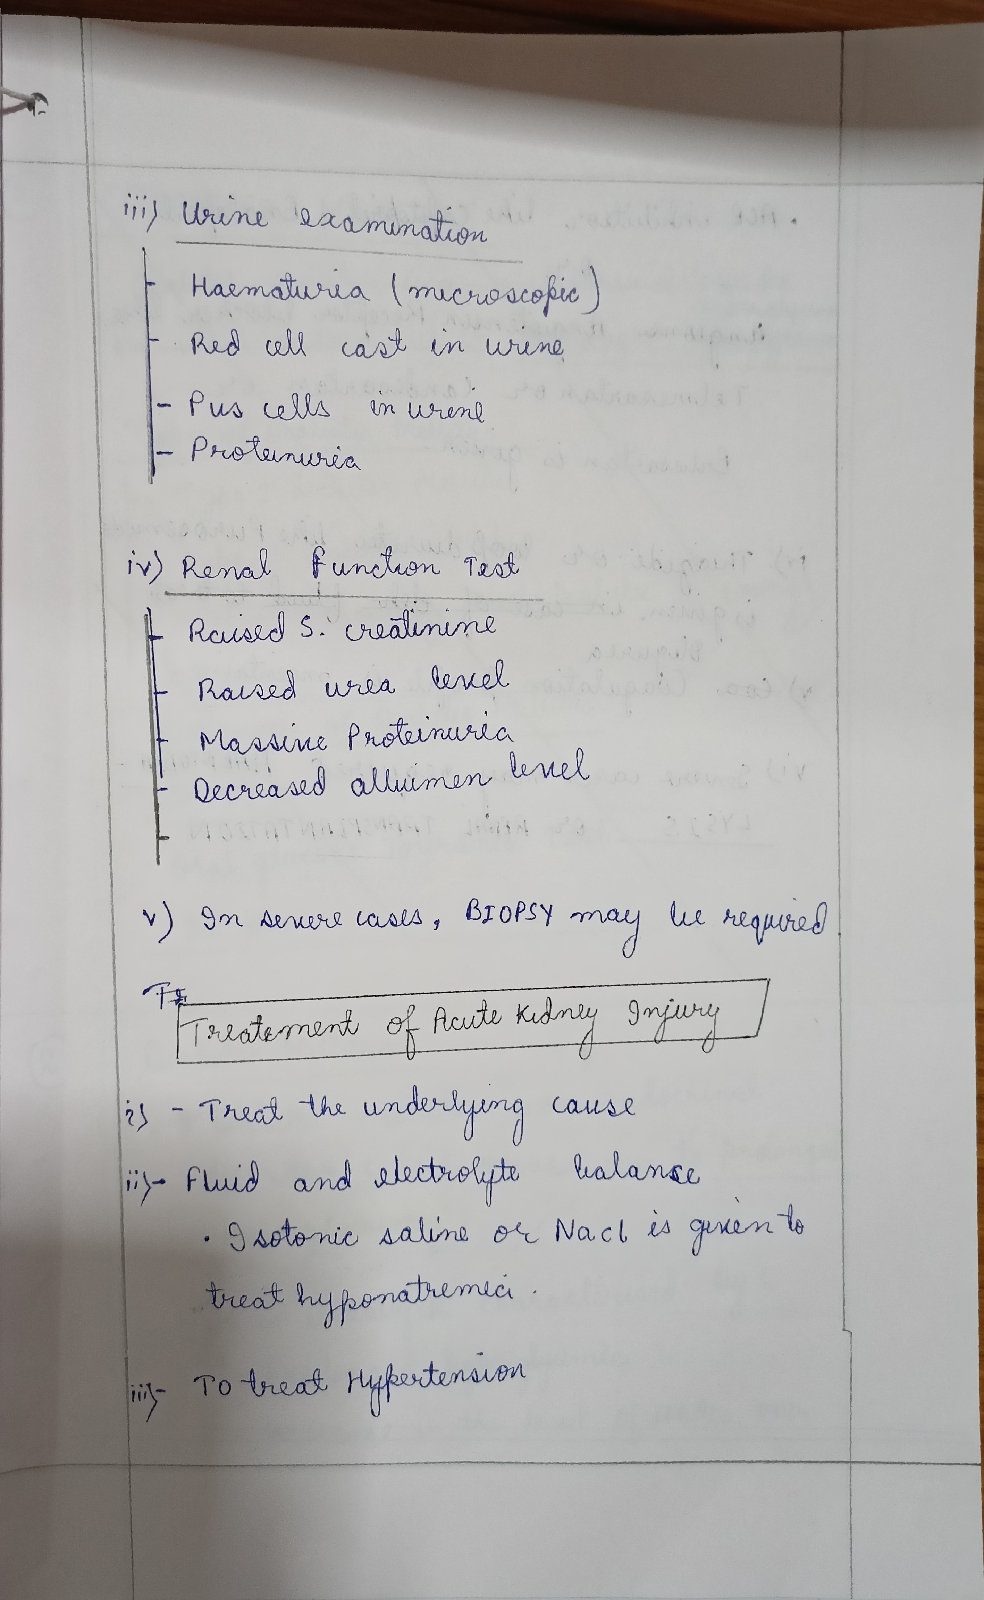 iii) Urine examination
- Haematuria (microscopic)
- Red cell cast in urine
- Pus cells in urine
- Proteinuria
iv) Renal Function Test
- Raised S. creatinine
- Raised urea level
- Massive Proteinuria
- Decreased albuimen level
-
v) In severe cases, BIOPSY may be required
Treatement of Acute Kidney Injury
i) - Treat the underlying cause
ii) - Fluid and electrolyte balance
• Isotonic saline or Nacl is given to
treat hyponatremia.
iii) - To treat Hypertension